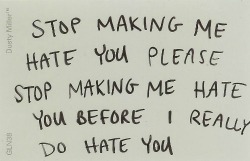 STOP MAKING ME
HATE YOU PLEASE
STOP MAKING ME HATE
YOU BEFORE I REALLY
DO HATE YOU
Dusty Miller™